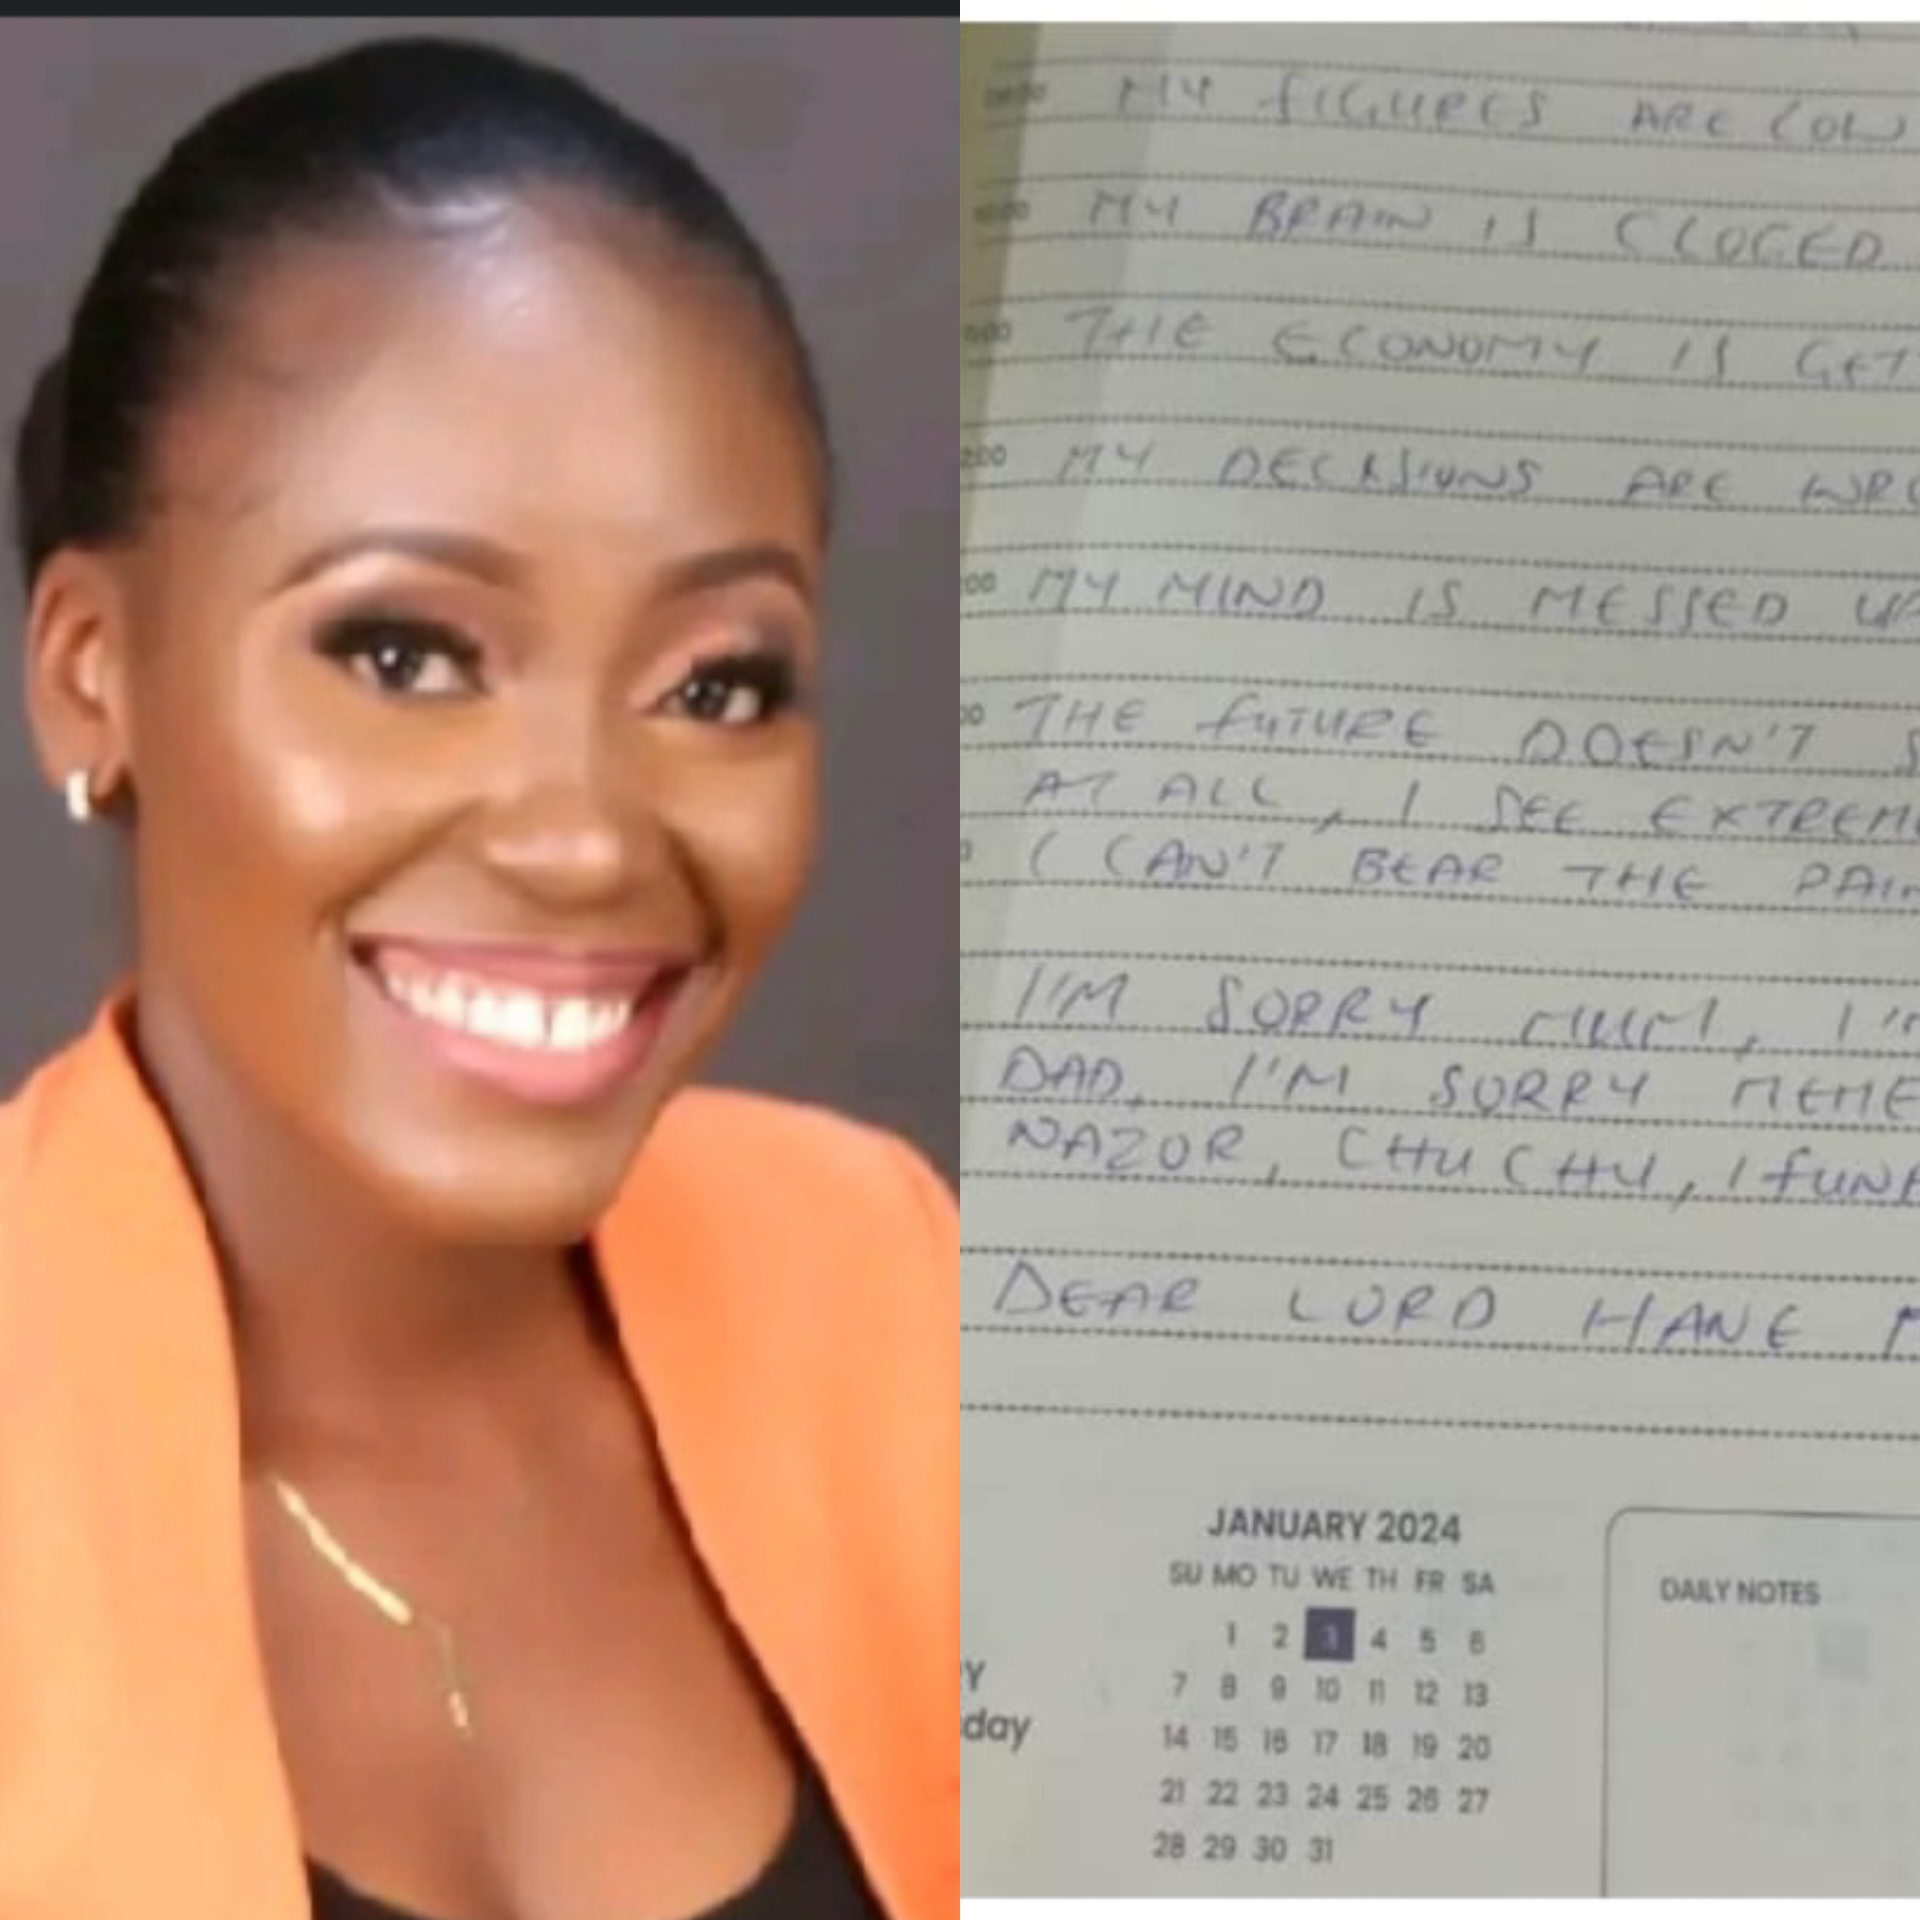 MY FIGURES ARE LOW
MY BRAIN IS CLOGED
THE ECONOMY IS GET
MY DECISIONS ARE WRO
MY MIND IS MESSED UP
THE FUTURE DOESN'T S
AT ALL, I SEE EXTREME
I CAN'T BEAR THE PAIN
I'M SORRY MUM, I'M
DAD, I'M SORRY MEME
NAZOR, CHUCHU, I
DEAR LORD HAVE M
JANUARY 2024
SU MO TU WE TH FR SA
1 2 3 4 5 6
7 8 9 10 11 12 13
14 15 16 17 18 19 20
21 22 23 24 25 26 27
28 29 30 31
DAILY NOTES
Y
day